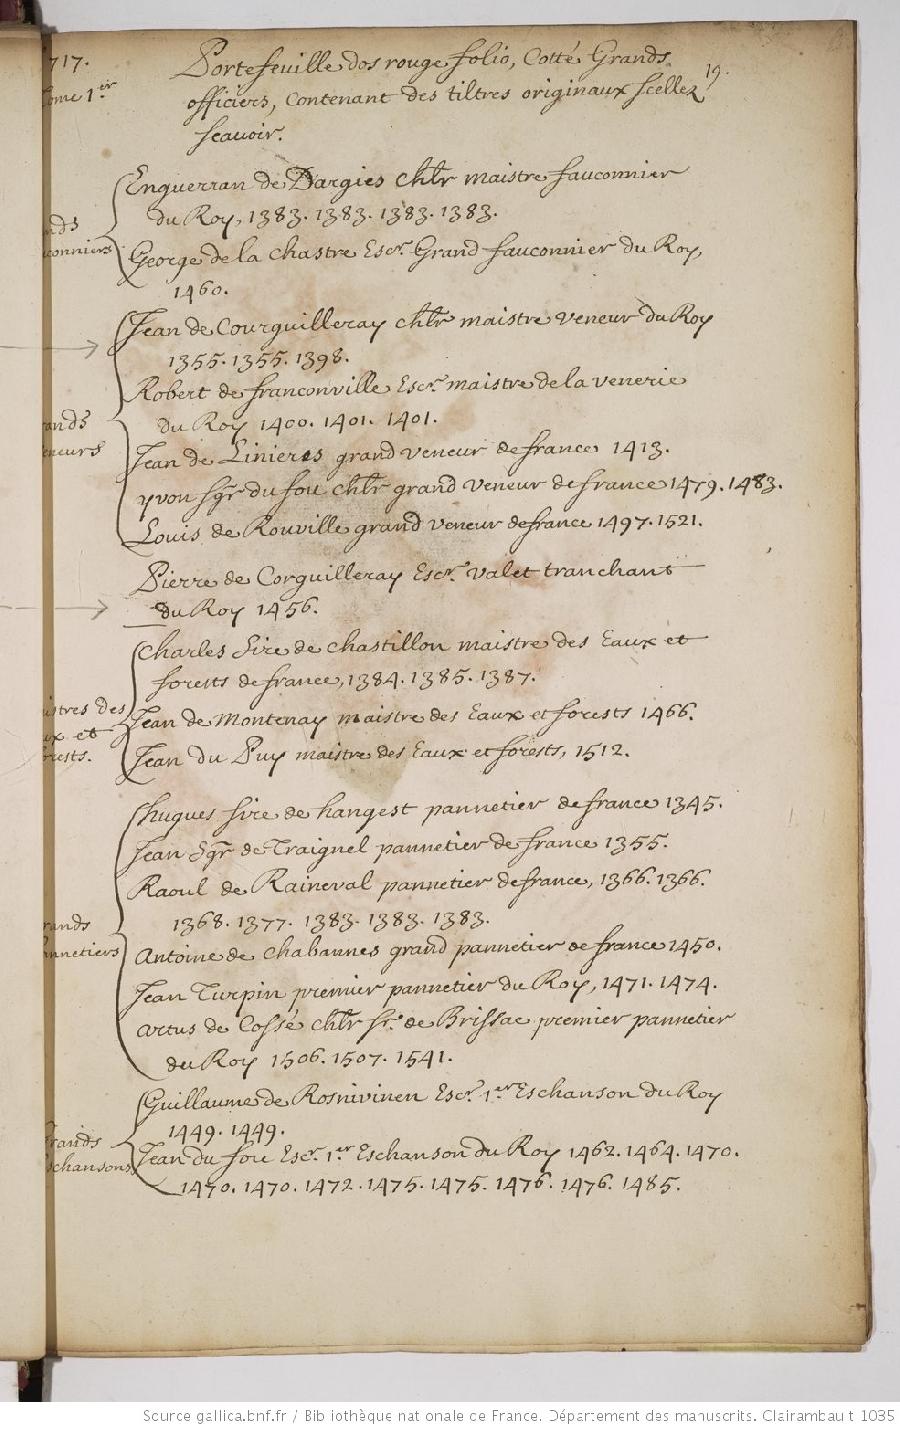 717.
Tome 1er
19.
Portefeuille dos rouge folio, Cotté Grands
officiers, contenant des tiltres originaux scellez
scavoir.
Enguerran de Dargies chlr maistre fauconnier
du Roy, 1383. 1383. 1383. 1383.
nds
conniers
George de la chastre Escr. Grand fauconnier du Roy,
1460.
Jean de Courguilleray chlr maistre veneur du Roy
1355. 1355. 1398.
Robert de franconville Escr. maistre de la venerie
ands
du Roy 1400. 1401. 1401.
eneurs
Jean de Linieres grand veneur de france 1413.
yvon sgr du fou chlr grand veneur de france 1479. 1483.
Louis de Rouville grand veneur de france 1497. 1521.
Pierre de Corguilleray Escr. valet tranchant
du Roy 1456.
Charles Sire de chastillon maistre des Eaux et
forests de france, 1384. 1385. 1387.
istres des
Jean de Montenay maistre des Eaux et forests 1466.
ux et
rests.
Jean du Puy maistre des Eaux et forests, 1512.
hugues sire de hangest pannetier de france 1345.
Jean sgr de Traignel pannetier de france 1355.
Raoul de Raineval pannetier de france, 1366. 1366.
1368. 1377. 1383. 1383. 1383.
rands
nnetiers
Antoine de Chabannes grand pannetier de france 1450.
Jean Turpin premier pannetier du Roy, 1471. 1474.
Artus de Cossé chlr sr. de Brissac premier pannetier
du Roy 1506. 1507. 1541.
Guillaume de Rosnivinen Escr. 1er Eschanson du Roy
1449. 1449.
rands
schansons
Jean du fou Escr. 1er Eschanson du Roy 1462. 1464. 1470.
1470. 1470. 1472. 1475. 1475. 1476. 1476. 1485.
Source gallica.bnf.fr / Bibliothèque nationale de France. Département des manuscrits. Clairambault 1035